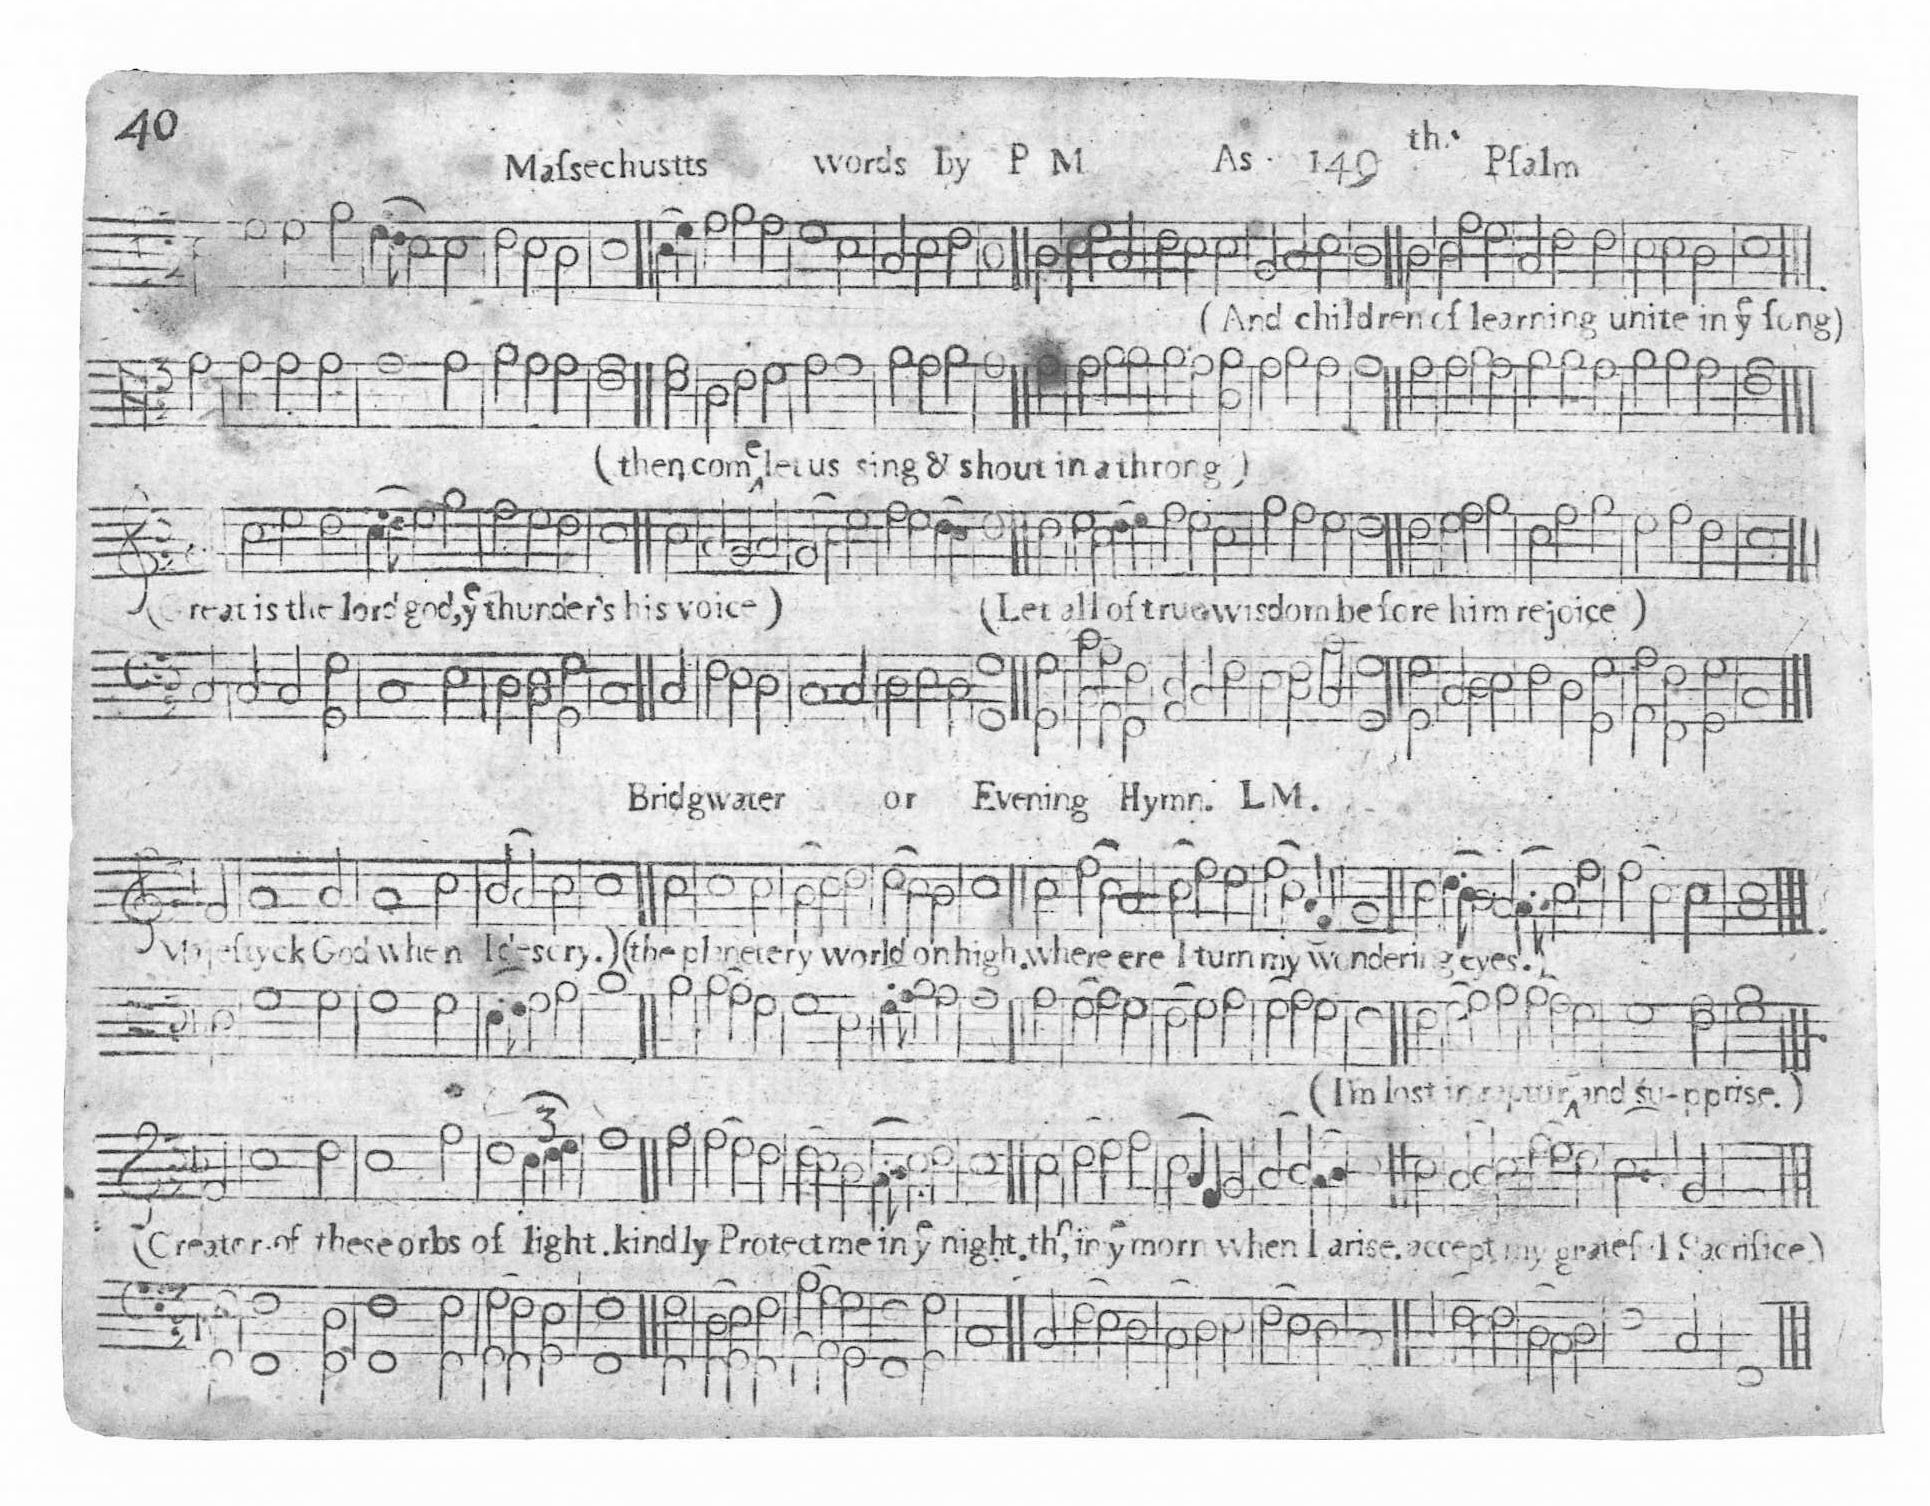 40
Maſsechustts words by P M As 149 th. Pſalm
(And children of learning unite in yͤ ſong)
(then, comͤ let us sing & shout in a throng)
(Great is the lord god, yͤ thunder's his voice) (Let all of true wisdom beſore him rejoice)
Bridgwater or Evening Hymn. L M.
Majeſtyck God when I descry.) (the planetery world on high. where ere I turn my wondering eyes.)
(I'm lost in and su-pprise.)
3
(Creator of these orbs of light. kindly Protect me in yͤ night. in yͤ morn when I arise. accept my grateful Sacrifice)